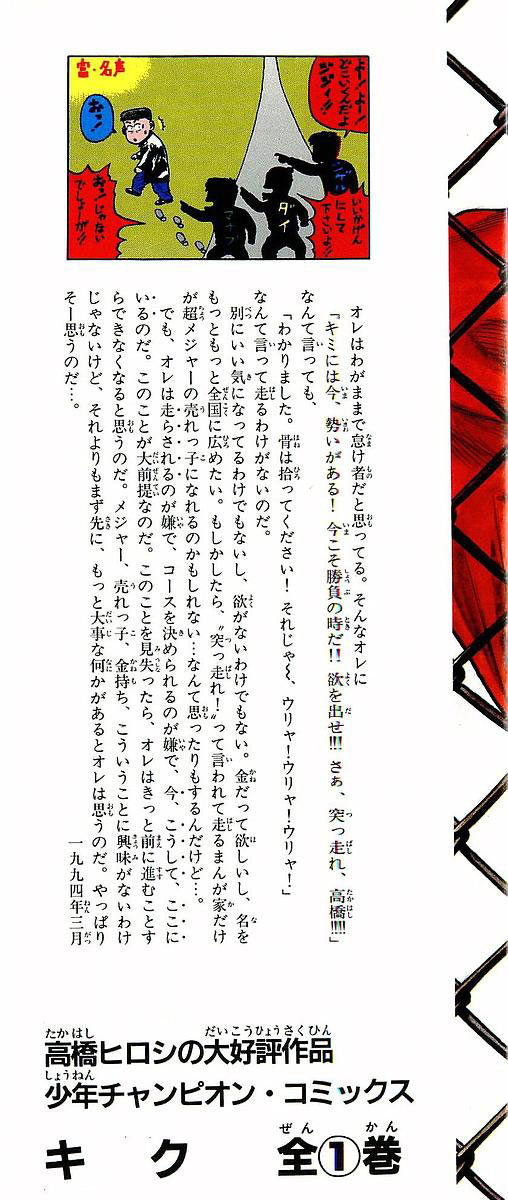 富・名声
よー！よー！
どこいくんだよ
ジジイ!!
おっ！
いいかげん
にして
下さいよ!!
ダイ
マナブ
おっじゃない
でしょーが!!
オレはわがままで怠け者だと思ってる。そんなオレに
「キミには今、勢いがある！今こそ勝負の時だ!!欲を出せ!!!さぁ、突っ走れ、高橋!!!!」
なんて言っても、
「わかりました。骨は拾ってください！それじゃ〜、ウリャ！ウリャ！ウリャ！」
なんて言って走るわけがないのだ。
別にいい気になってるわけでもないし、欲がないわけでもない。金だって欲しいし、名を
もっともっと全国に広めたい。もしかしたら、〝突っ走れ！〟って言われて走るまんが家だけ
が超メジャーの売れっ子になれるのかもしれない…なんて思ったりもするんだけど…。
でも、オレは走らされるのが嫌で、コースを決められるのが嫌で、今、こうして、ここに
いるのだ。このことが大前提なのだ。このことを見失ったら、オレはきっと前に進むことす
らできなくなると思うのだ。メジャー、売れっ子、金持ち、こういうことに興味がないわけ
じゃないけど、それよりもまず先に、もっと大事な何かがあるとオレは思うのだ。やっぱり
そー思うのだ…。
一九九四年三月
高橋ヒロシの大好評作品
少年チャンピオン・コミックス
キク 全①巻